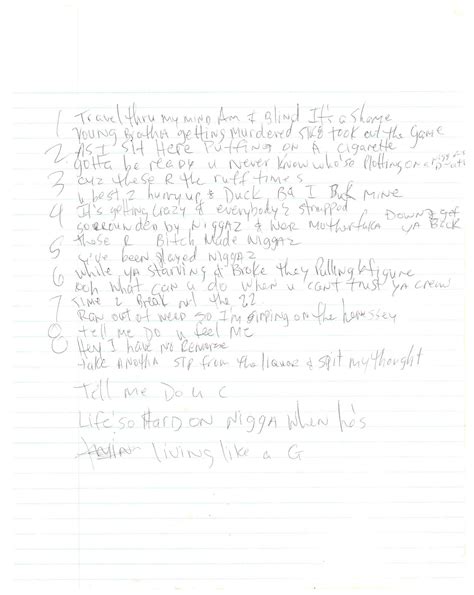 1 Travel thru my mind Am I Blind It's a Shame
Young Brotha getting murdered took out the Game
2 As I Sit Here Puffing on A Cigarette
Gotta be ready u Never Know who'se Plotting on
3 cuz these R the ruff times
u best 2 hurry up & Duck B4 I Bust MINE
4 It's getting Crazy & everybody'z strapped
sorrounded by Niggaz & war Motherfuka Down 2 get ya Back
5 these R Bitch Made Niggaz
u've been played Niggaz
6 while ya starving & Broke they Pulling 6 figure
ooh what can u do when u cant trust ya crew
7 time 2 Break out the 22
Ran out of weed so I'm sipping on the hennessey
8 tell me Do u feel Me
Hey I have no Remorse
take Anotha sip from the liquor & spit my thought
Tell me Do u C
Life's so Hard on Nigga when he's
living like a G